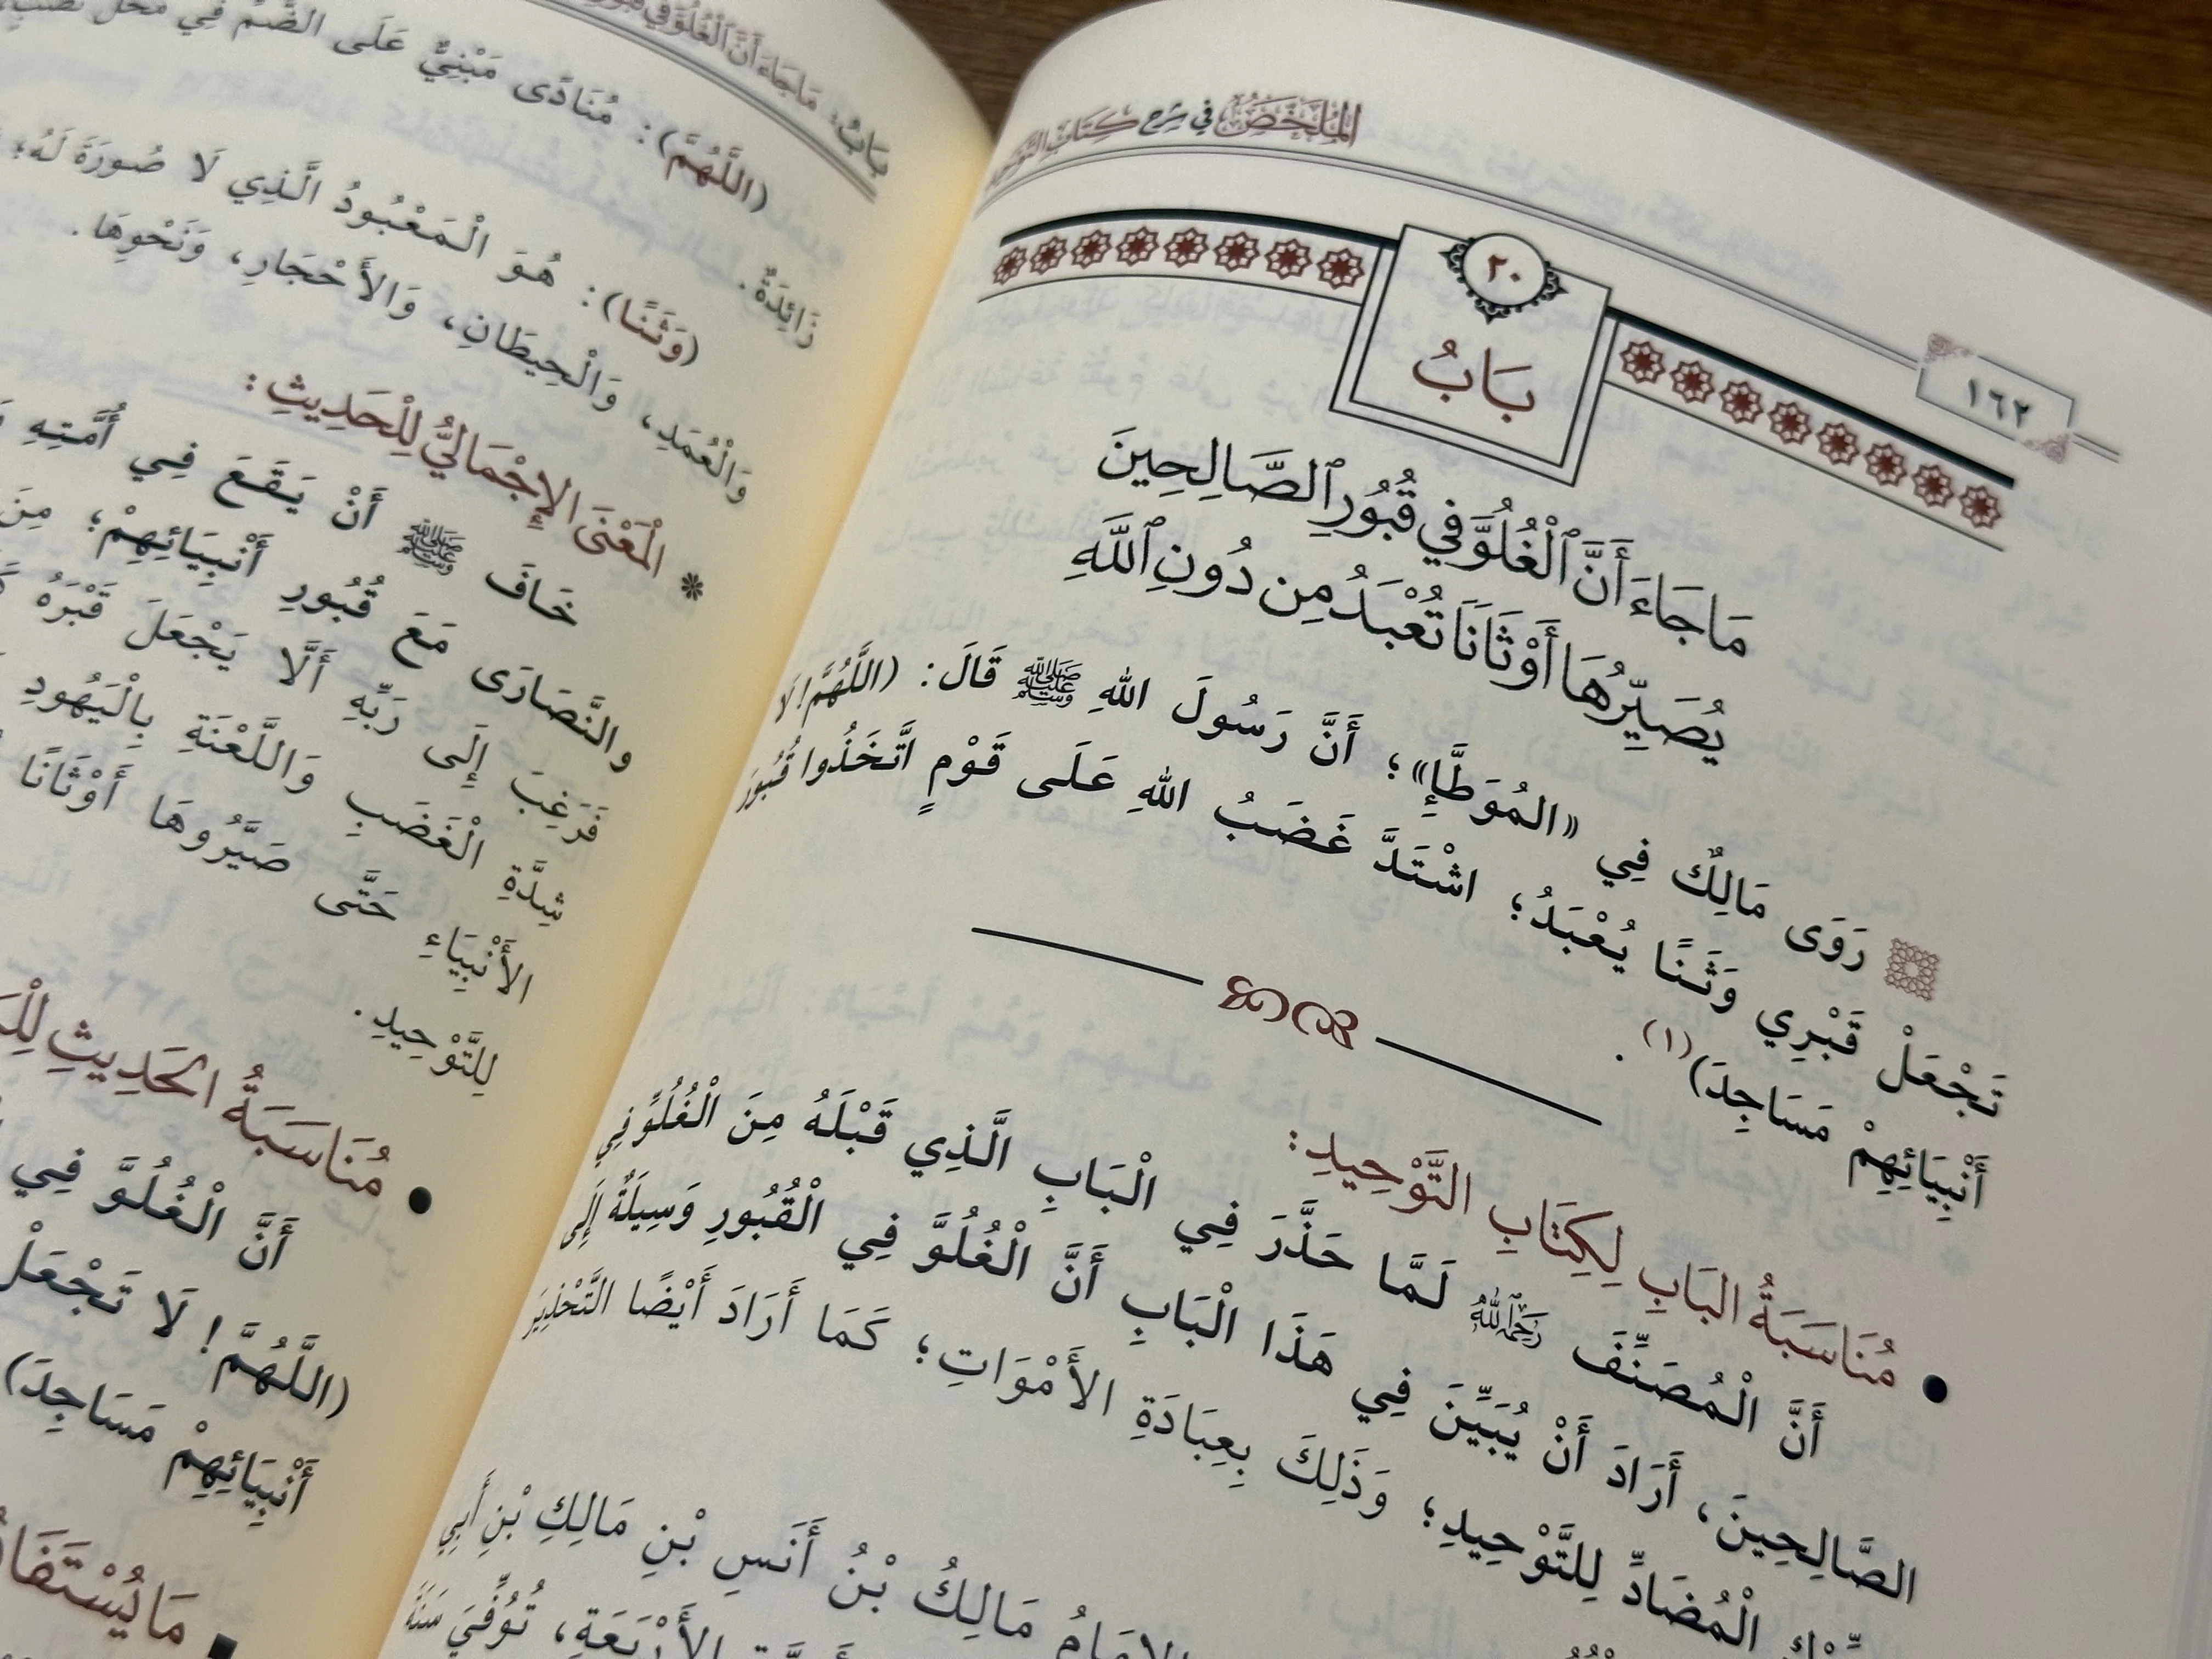 الْمُلَخَّصُ فِي شَرْحِ كِتَابِ التَّوْحِيدِ
١٦٢
٢٠
بَابُ
مَا جَاءَ أَنَّ ٱلْغُلُوَّ فِي قُبُورِ ٱلصَّالِحِينَ
يُصَيِّرُهَا أَوْثَانَاَ تُعْبَدُ مِن دُونِ ٱللَّهِ
رَوَى مَالِكٌ فِي «المُوَطَّإِ»؛ أَنَّ رَسُولَ اللهِ ﷺ قَالَ: (اللَّهُمَّ! لَا
تَجْعَلْ قَبْرِي وَثَنًا يُعْبَدُ؛ اشْتَدَّ غَضَبُ اللهِ عَلَى قَوْمٍ اتَّخَذُوا قُبُورَ
أَنْبِيَائِهِمْ مَسَاجِدَ)(١).
● مُنَاسَبَةُ البَابِ لِكِتَابِ التَّوْحِيدِ:
أَنَّ الْمُصَنِّفَ رَحِمَهُ اللَّهُ لَمَّا حَذَّرَ فِي الْبَابِ الَّذِي قَبْلَهُ مِنَ الْغُلُوِّ فِي
الصَّالِحِينَ، أَرَادَ أَنْ يُبَيِّنَ فِي هَذَا الْبَابِ أَنَّ الْغُلُوَّ فِي الْقُبُورِ وَسِيلَةٌ إِلَى
الْمُضَادِّ لِلتَّوْحِيدِ؛ وَذَلِكَ بِعِبَادَةِ الأَمْوَاتِ؛ كَمَا أَرَادَ أَيْضًا التَّحْذِيرَ
مَالِكُ بْنُ أَنَسِ بْنِ مَالِكِ بْنِ أَبِي
الأَرْبَعَةِ، تُوُفِّيَ سَنَةَ
بَابُ: مَا جَاءَ أَنَّ الْغُلُوَّ فِي قُبُورِ
(اللَّهُمَّ): مُنَادًى مَبْنِيٌّ عَلَى الضَّمِّ فِي مَحَلِّ نَصْبٍ
زَائِدَةٌ.
(وَثَنًا): هُوَ الْمَعْبُودُ الَّذِي لَا صُورَةَ لَهُ؛
وَالْعُمَدِ، وَالْحِيطَانِ، وَالأَحْجَارِ، وَنَحْوِهَا.
الْمَعْنَى الإِجْمَالِيُّ لِلْحَدِيثِ:
خَافَ ﷺ أَنْ يَقَعَ فِي أُمَّتِهِ
والنَّصَارَى مَعَ قُبُورِ أَنْبِيَائِهِمْ؛ مِنَ
فَرَغِبَ إِلَى رَبِّهِ أَلَّا يَجْعَلَ قَبْرَهُ
شِدَّةِ الْغَضَبِ وَاللَّعْنَةِ بِالْيَهُودِ
الأَنْبِيَاءِ حَتَّى صَيَّرُوهَا أَوْثَانًا
لِلتَّوْحِيدِ.
● مُنَاسَبَةُ الحَدِيثِ
أَنَّ الْغُلُوَّ فِي
(اللَّهُمَّ! لَا تَجْعَلْ
أَنْبِيَائِهِمْ مَسَاجِدَ)